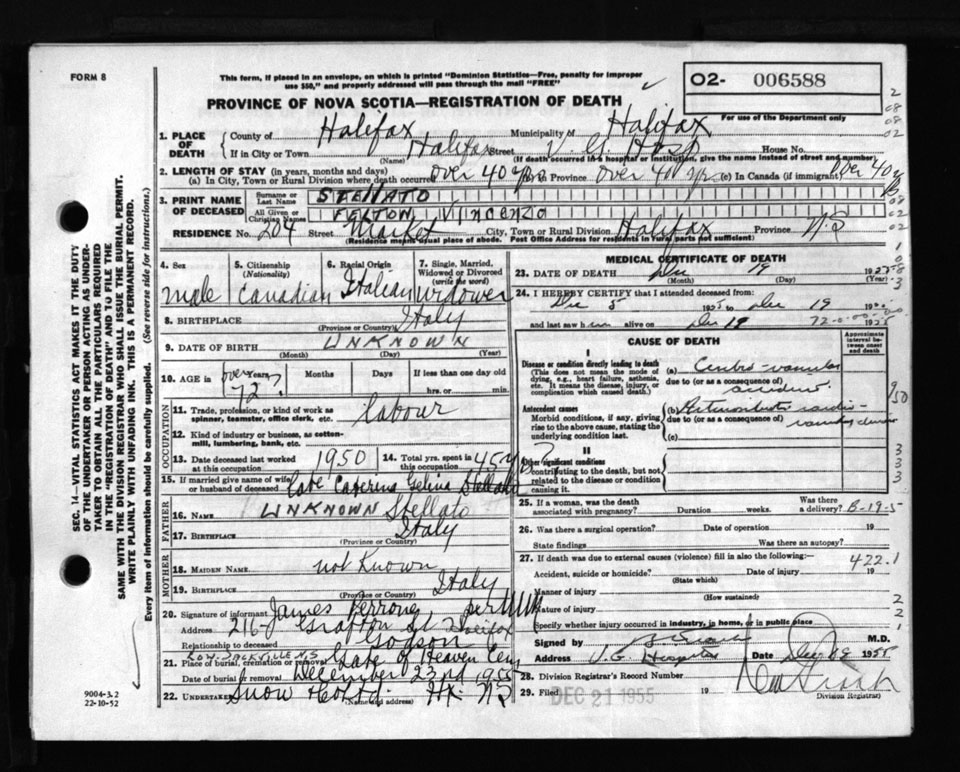 FORM 8
This form, if placed in an envelope, on which is printed "Dominion Statistics—Free, penalty for improper
use $50," and properly addressed will pass through the mail "FREE"
O2- 006588
For use of the Department only
PROVINCE OF NOVA SCOTIA—REGISTRATION OF DEATH
1. PLACE OF DEATH
County of Halifax Municipality of Halifax
If in City or Town Halifax Street V. G. Hosp House No.
(Name) (If death occurred in a hospital or institution, give the name instead of street and number)
2. LENGTH OF STAY (in years, months and days)
(a) In City, Town or Rural Division where death occurred over 40 yrs (b) Province over 40 yrs (c) In Canada (if immigrant) over 40 yrs
3. PRINT NAME OF DECEASED
Surname or Last Name STELLATO
All Given or Christian Names FELTON VINCENZO
RESIDENCE No. 204 Street Market City, Town or Rural Division Halifax Province N.S
(Residence means usual place of abode. Post Office Address for residents in rural parts not sufficient)
4. Sex male
5. Citizenship (Nationality) Canadian
6. Racial Origin Italian
7. Single, Married, Widowed or Divorced (write the word) Widower
8. BIRTHPLACE Italy
(Province or Country)
9. DATE OF BIRTH UNKNOWN
(Month) (Day) (Year)
10. AGE in Years Months Days If less than one day old
over 72? hrs. or min.
OCCUPATION
11. Trade, profession, or kind of work as spinner, teamster, office clerk, etc. labour
12. Kind of industry or business, as cotton-mill, lumbering, bank, etc.
13. Date deceased last worked at this occupation 1950
14. Total yrs. spent in this occupation 45 yrs?
15. If married give name of wife or husband of deceased Late Caterina Gelina Stellato
FATHER
16. NAME UNKNOWN Stellato
17. BIRTHPLACE Italy
(Province or Country)
MOTHER
18. MAIDEN NAME not Known
19. BIRTHPLACE Italy
(Province or Country)
20. Signature of informant James Perrone per
Address 216- Grafton St. Halifax
Relationship to deceased Godson
LOW. SACKVILLE N.S
21. Place of burial, cremation or removal Gate of Heaven Cem
Date of burial or removal December 23rd 1955
22. Undertaker Snow & Co Ltd. Hx. N.S
(Name and address)
MEDICAL CERTIFICATE OF DEATH
23. DATE OF DEATH Dec 19 19
(Month) (Day) (Year)
24. I HEREBY CERTIFY that I attended deceased from:
Dec 5 1955 to Dec 19 19
and last saw him alive on Dec 19 1955
CAUSE OF DEATH
Approximate interval between onset and death
I
Disease or condition directly leading to death
(This does not mean the mode of dying, e.g., heart failure, asthenia, etc. It means the disease, injury, or complication which caused death.)
(a) Cerebro-vascular accident
due to (or as a consequence of)
Antecedent causes
Morbid conditions, if any, giving rise to the above cause, stating the underlying condition last.
(b) Arteriosclerotic cardio-vascular disease
due to (or as a consequence of)
(c)
II
Other significant conditions
contributing to the death, but not related to the disease or condition causing it.
25. If a woman, was the death associated with pregnancy? Duration weeks. Was there a delivery? B-19-5
26. Was there a surgical operation? Date of operation 19
State findings Was there an autopsy?
27. If death was due to external causes (violence) fill in also the following:— 422.1
Accident, suicide or homicide? Date of injury 19
(State which)
Manner of injury
(How sustained)
Nature of injury
Specify whether injury occurred in industry, in home, or in public place
Signed by M.D.
Address V.G. Hospital Date Dec 1955
28. Division Registrar's Record Number
29. Filed DEC 21 1955 19
Division Registrar
9004-3.2
22-10-52
SEC. 14—VITAL STATISTICS ACT MAKES IT THE DUTY
OF THE UNDERTAKER OR PERSON ACTING AS UNDER-
TAKER TO OBTAIN ALL THE PARTICULARS REQUIRED
IN THE "REGISTRATION OF DEATH" AND TO FILE THE
SAME WITH THE DIVISION REGISTRAR WHO SHALL ISSUE THE BURIAL PERMIT.
WRITE PLAINLY WITH UNFADING INK. THIS IS A PERMANENT RECORD.
Every item of information should be carefully supplied. (See reverse side for instructions.)